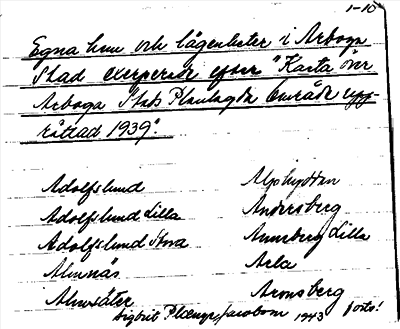 1-10
Egna hem och lägenheter i Arboga
Stad excerperade efter "Karta över
Arboga Stads Planlagda område upp-
rättad 1939".
Adolfslund
Adolfslund Lilla
Adolfslund Stora
Almnäs
Almsäter
Alphyddan
Andersberg
Annsberg Lilla
Arla
Aronsberg
Sigbrit Jacobson 1943 forts!